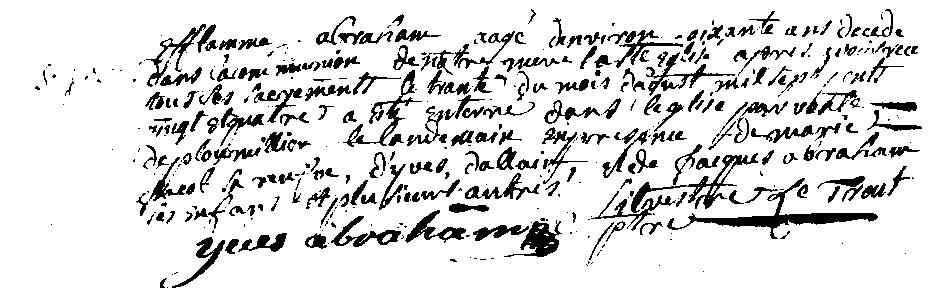 efflamme abraham aagé denviron soixante ans decede
dans la communion de notre mere la ste eglise apres avoir recu
tous ses sacrements le trante du mois daoust mil sept cents
vingt et quatre a este enterre dans leglise parroissialle
de ploumillion le landemain en presence de marie
sa veufve, d'yves, dallain, et de Jacques abraham
ses enfans et plusieurs autres, silvestre Le Thout
yves abraham ptre